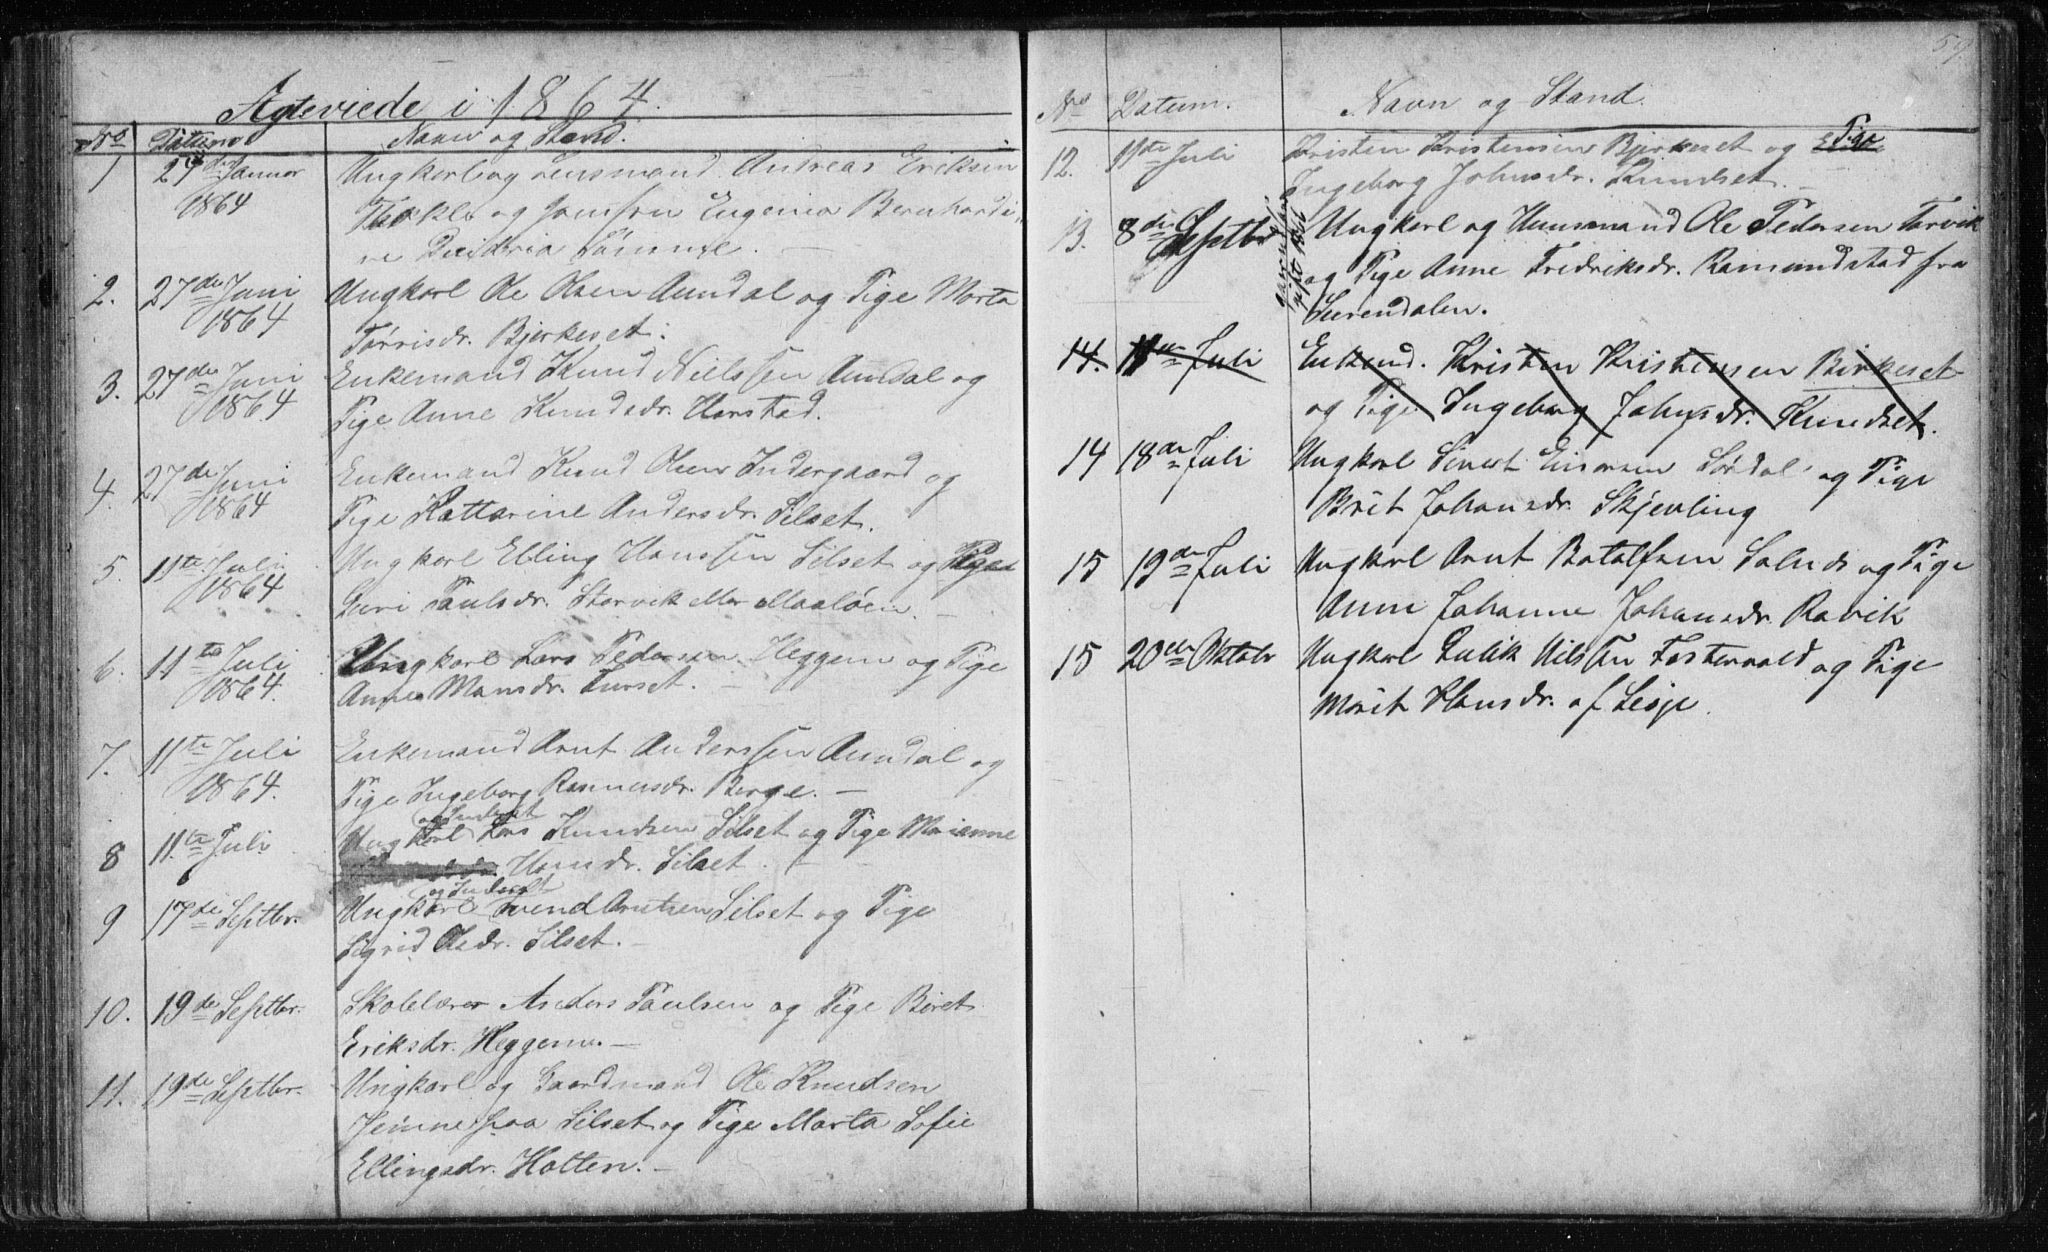 Agteviede i 1864.
No Datum Navn og Stand.
1 27de Januar Ungkarl og Lensmand Andreas Eriksen
1864 og Jomfru Eugenia Bernhardi-
ne
2. 27de Juni Ungkarl Ole Olsen Aundal og Pige Marta
1864 Tørrisdr. Bjerkeset.
3. 27de Juni Enkemand Knud Nielssen Aundal og
1864 Pige Anne Knudsdr. Harstad.
4. 27de Juni Enkemand Knud Olsen Indergaard og
1864 Pige Kattarine Andersdr. Silset.
5. 11te Juli Ungkarl Elling Hanssen Silset og Pige
1864 Guri Paulsdr. Storvik eller Maaløen.
6. 11te Juli Ungkarl Lars Pedersen Heggem og Pige
1864. Anne Mansdr. Turset.
7. 11te Juli Enkemand Arnt Anderssen Aundal og
1864. Pige Ingeborg Rasmusdr. Berge.
og Inderst
8 11te Juli Ungkarl Lars Knudsen Silset og Pige Marianne
Hansdr. Silset.
og Inderst
9 17de Septbr. Ungkarl Svend Arntsen Silset og Pige
Sigrid Olsdr. Silset.
10. 19de Septbr. Skolelærer Anders Paulsen og Pige Beret
Eriksdr. Heggem.
11. 19de Septbr. Ungkarl og Gaardmand Ole Knudsen
paa Silset og Pige Marta Sofie
Ellingsdr. Hatten.
59.
No Datum. Navn og Stand.
Pige
12. 11te Juli Kristen Kristensen Bjerkeset og
Ingeborg Johnsdr. Knudset.
13. 8de Septbr Ungkarl og Huusmand Ole Pedersen Torvik
og Pige Anne Fredriksdr. Ramundstad fra
Surendalen.
14. 11te Juli Enkemd. Kristen Kristensen Birkeset
og Pige Ingeborg Johnsdr. Knudset.
14 18de Juli Ungkarl Sivert Einarsen Sørdal og Pige
Brit Johansdr. Skjevling
15 19de Juli Ungkarl Arnt Botolfsen Solnds og Pige
Anne Johanne Johansdr. Ravik
15 20de Oktobr Ungkarl Lulik Nilssen Fostervold og Pige
Marit Hansdr. af Lesje.